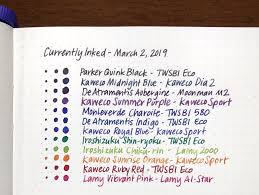 Currently Inked - March 2, 2019
Parker Quink Black - TWSBI Eco
Kaweco Midnight Blue - Kaweco Dia 2
De Atramentis Aubergine - Moonman M2
Kaweco Summer Purple - Kaweco Sport
Monteverde Charoite - TWSBI 580
De Atramentis Indigo - TWSBI Eco
Kaweco Royal Blue - Kaweco Sport
Iroshizuku Shin-ryoku - TWSBI Eco
Iroshizuku Chiku-rin - Lamy 2000
Kaweco Sunrise Orange - Kaweco Sport
Kaweco Ruby Red - TWSBI Eco
Lamy Vibrant Pink - Lamy Al-Star